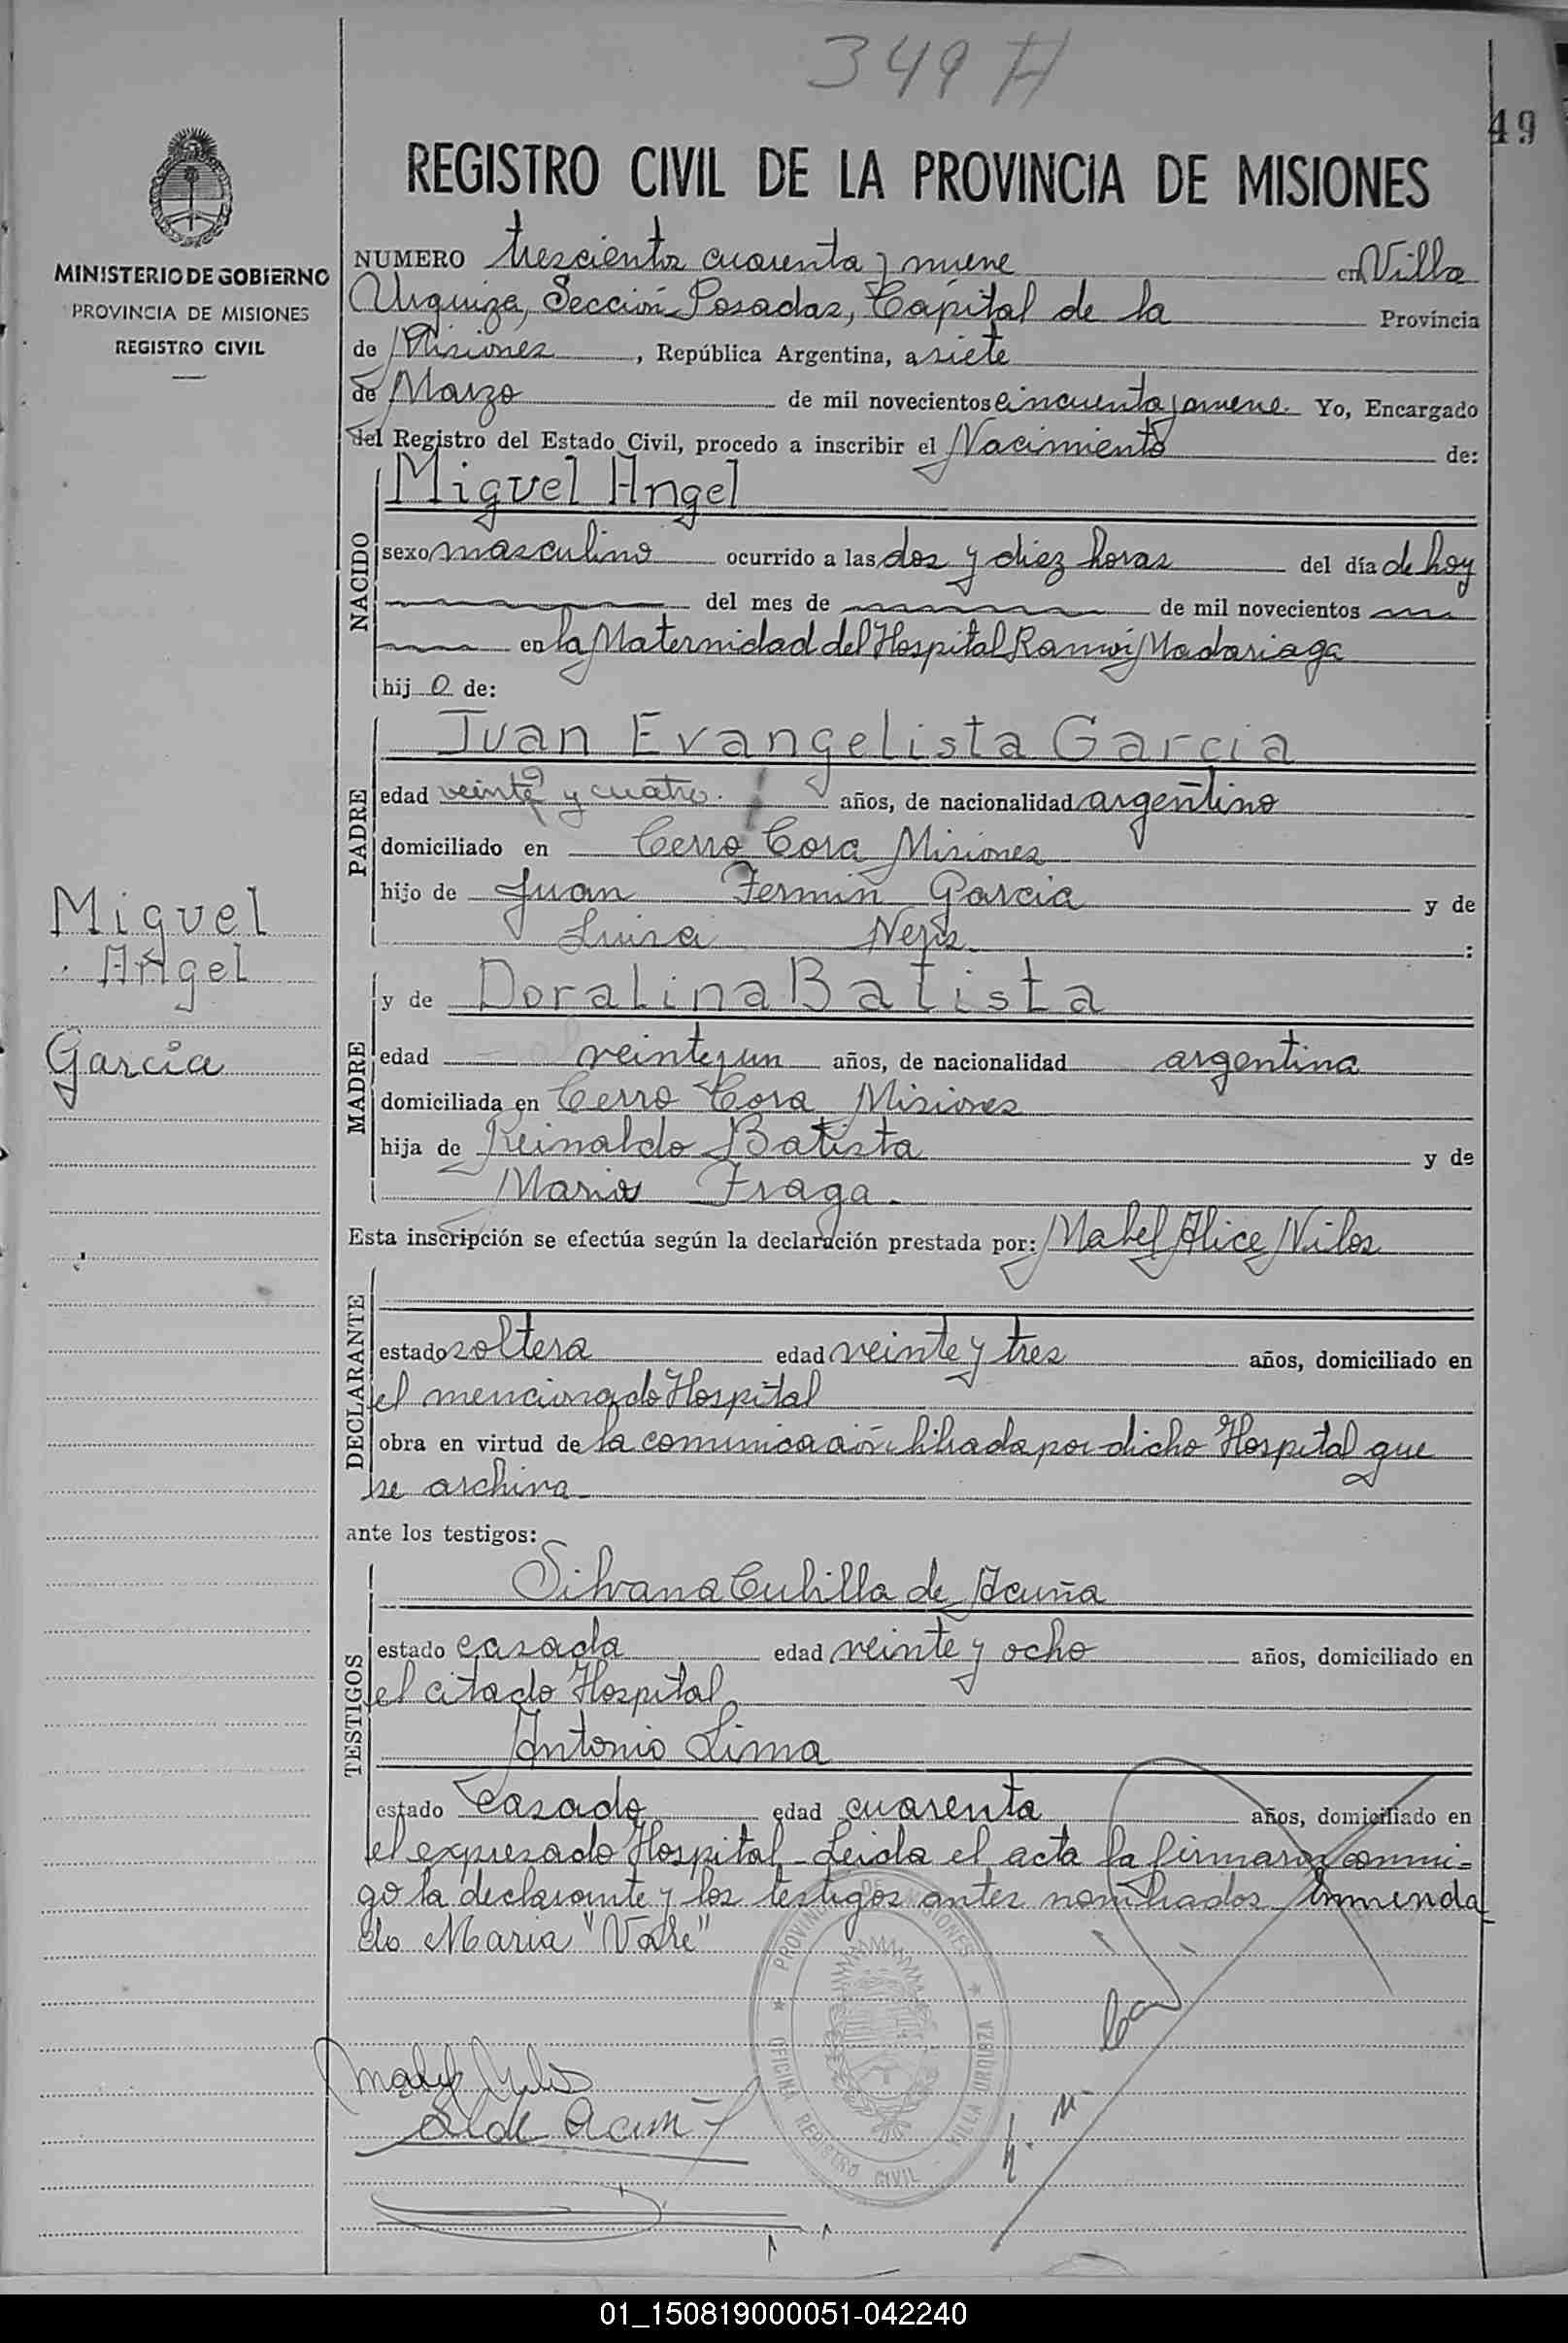 349 H
49
REGISTRO CIVIL DE LA PROVINCIA DE MISIONES
MINISTERIO DE GOBIERNO
PROVINCIA DE MISIONES
REGISTRO CIVIL
NUMERO trescientos cuarenta y nueve en Villa
Urquiza, Sección Posadas, Capital de la Provincia
de Misiones, República Argentina, a siete
de Marzo de mil novecientos cincuenta y nueve. Yo, Encargado
del Registro del Estado Civil, procedo a inscribir el Nacimiento de:
NACIDO
Miguel Angel
sexo masculino ocurrido a las dos y diez horas del día de hoy
del mes de de mil novecientos
en la Maternidad del Hospital Ramón Madariaga
hijo de:
PADRE
Juan Evangelista Garcia
edad veinte y cuatro. años, de nacionalidad argentino
domiciliado en Cerro Cora Misiones
hijo de Juan Fermin Garcia y de
Luisa :
Miguel
Angel
García
MADRE
y de Doralina Batista
edad veinte y un años, de nacionalidad argentina
domiciliada en Cerro Cora Misiones
hija de Reinaldo Batista y de
Maria Fraga.
Esta inscripción se efectúa según la declaración prestada por: Mabel Alice Nilos
DECLARANTE
estado soltera edad veinte y tres años, domiciliado en
el mencionado Hospital
obra en virtud de la comunicación librada por dicho Hospital que
se archiva
ante los testigos:
TESTIGOS
Silvana Cubilla de Acuña
estado casada edad veinte y ocho años, domiciliado en
el citado Hospital
Antonio Lima
estado casado edad cuarenta años, domiciliado en
el expresado Hospital. Leida el acta la firmaron conmi=
go la declarante y los testigos antes nombrados. Enmenda
do Maria "Vale"
PROVINCIA DE MISIONES
OFICINA REGISTRO CIVIL - VILLA URQUIZA
Acuña
01_150819000051-042240